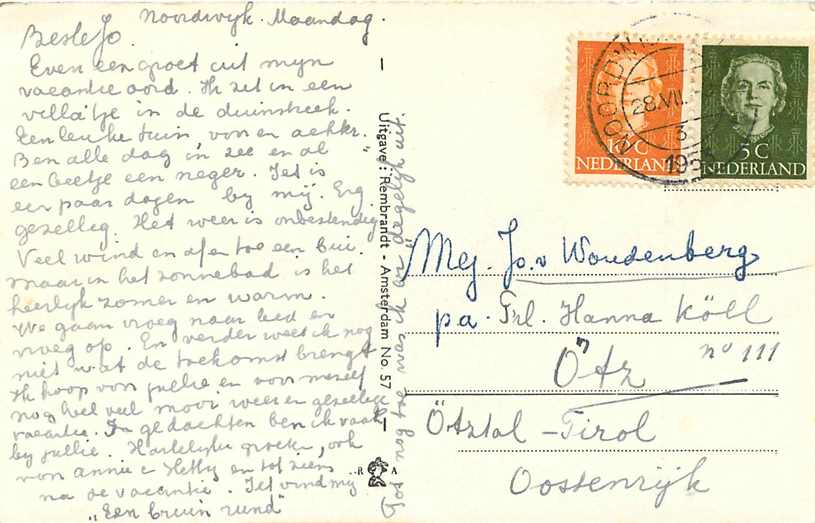 Noordwijk. Maandag.
Beste Jo.
Even een groet uit mijn
vacantie oord. Ik zit in een
villa'tje in de duinstreek.
Een leuke tuin, voor en achter.
Ben alle dag in zee en al
een beetje een neger. Jet is
een paar dagen by mij. Erg
gezellig. Het weer is onbestendig
Veel wind en af en toe een bui.
maar in het zonnebad is het
heerlijk zomer en warm.
We gaan vroeg naar bed en
vroeg op. En verder weet ik nog
niet wat de toekomst brengt
Ik hoop voor jullie en voor mezelf
nog heel veel mooi weer en gezellige
vacantie. In gedachten ben ik vaak
by jullie. Hartelijke groeten, ook
van Annie e Hetty en tot ziens
na de vacantie. Jet vind mij
"Een bruin rund"
nog toe was ik er dagelijks uit.
Uitgave: Rembrandt - Amsterdam No. 57
R A
NOORDW
28.VII.
3
195
10 C
NEDERLAND
5 C
NEDERLAND
Mej. Jo. v Woudenberg
p.a. Frl. Hanna Köll
Ötz no 111
Ötztal - Tirol
Oostenrijk